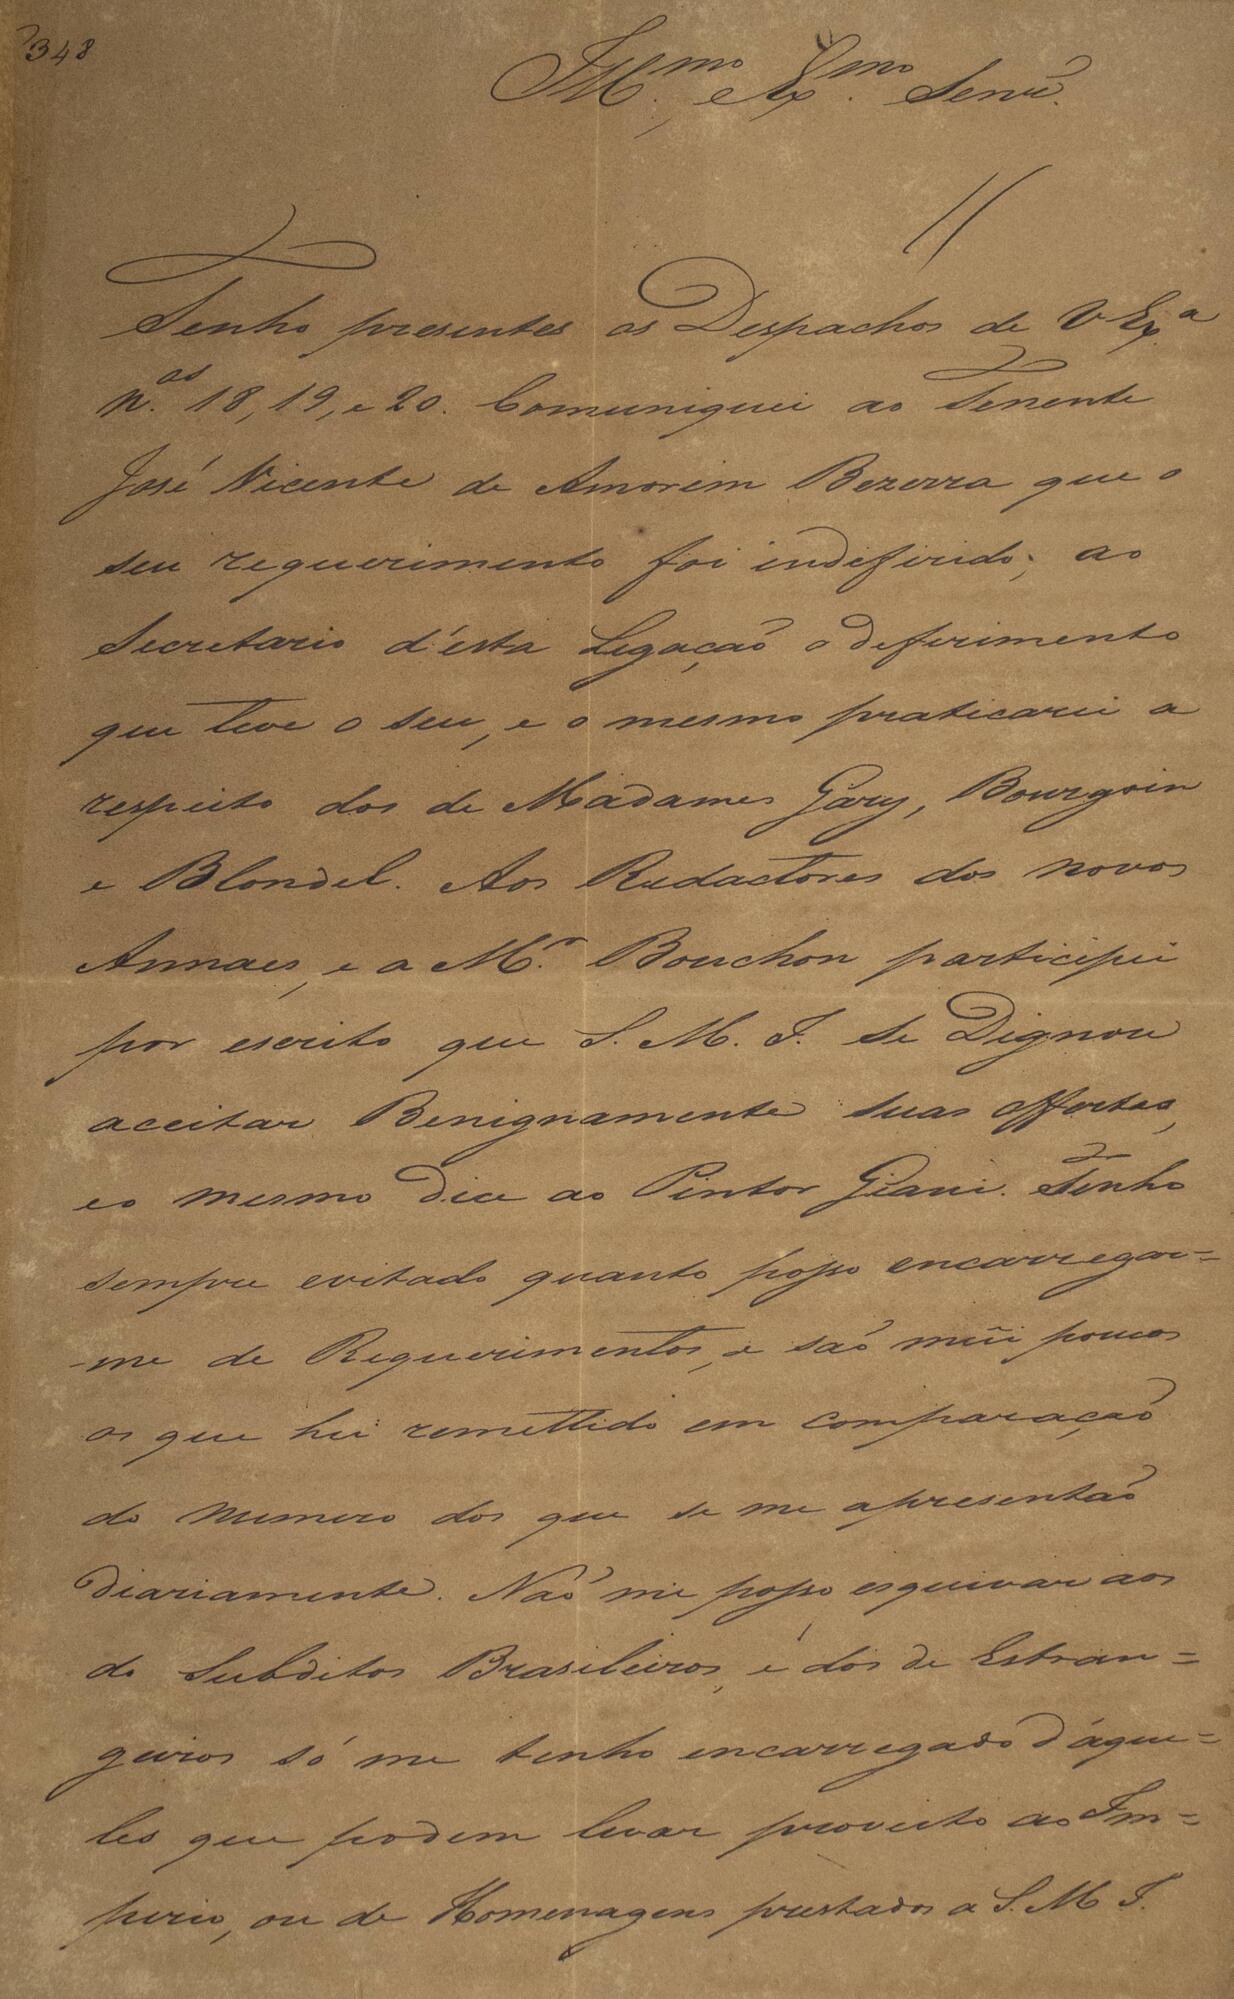 348
Ill.mo e Ex.mo Senr.
Tenho presentes os Despachos de V Ex.a
N.os 18, 19, e 20. Comuniquei ao Tenente
José Vicente de Amorim Bezerra que o
seu requerimento foi indeferido; ao
Secretario d'esta Legação o deferimento
que teve o seu, e o mesmo praticarei a
respeito dos de Madames Gary, Bourgoin
e Blondel. Aos Redactores dos novos
Annaes, e a M.r Bouchon participei
por escrito que S. M. I. se Dignou
aceitar Benignamente suas offertas,
e o mesmo dice ao Pintor Giani. Tenho
sempre evitado quanto posso encarregar=
-me de Requerimentos, e saõ mũi poucos
os que hei remettido em comparaçaõ
do numero dos que se me apresentaõ
diariamente. Naõ me posso esquivar aos
de Subditos Brasileiros, e dos de Estran=
geiros só me tenho encarregado d'aque=
les que podem levar proveito ao Im=
perio, ou de Homenagens prestados a S. M I.